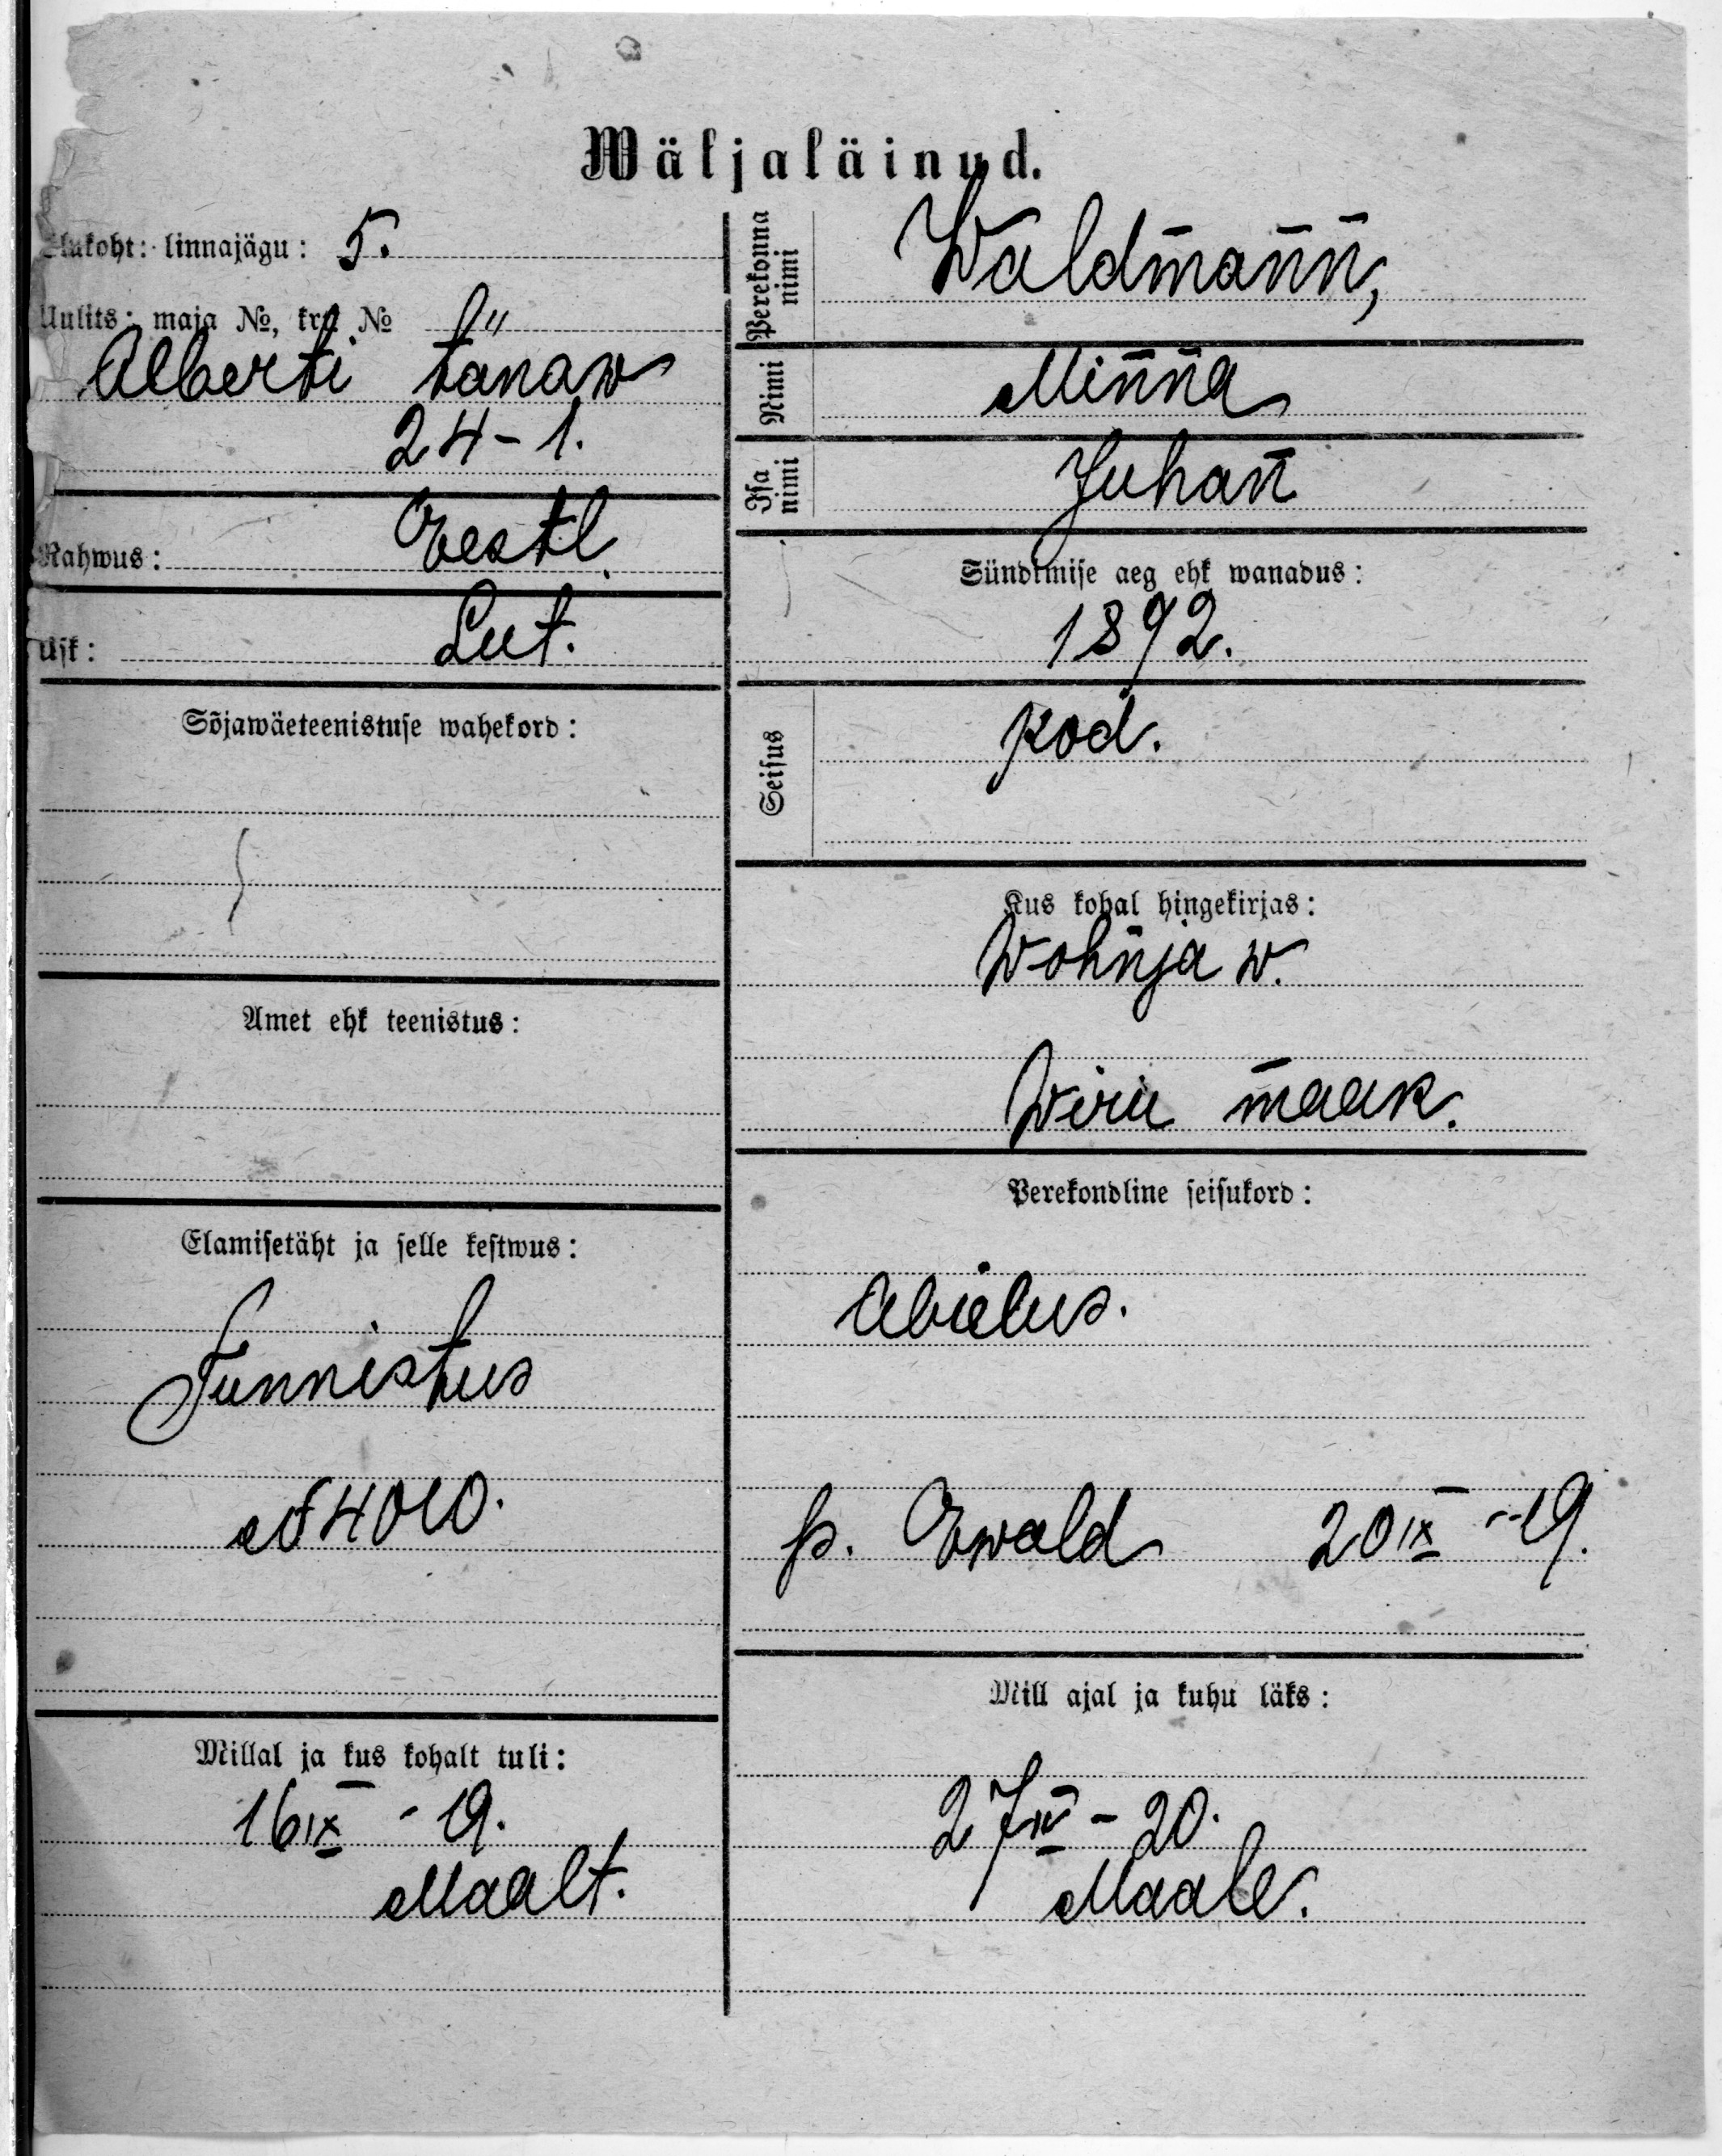 Wäljaläinud.
Elukoht: linnajägu: 5.
Uulits: maja №, krt. №
Alberti tänaw
24-1.
Rahwus: Eestl.
Usk: Lut.
Sõjawäeteenistuse wahekord:
Amet ehk teenistus:
Elamisetäht ja selle kestwus:
Tunnistus
№ 4010.
Millal ja kus kohalt tuli:
16 IX - 19.
Maalt.
Perekonna nimi Waldmann,
Nimi Minna
Isa nimi Juhan
Sündimise aeg ehk wanadus:
1892.
Seisus kod.
Kus kohal hingekirjas:
Wohnja w.
Wiru maak.
Perekondline seisukord:
Abielus.
p. Ewald 20 IX - 19.
Mill ajal ja kuhu läks:
27 IV - 20.
Maale.